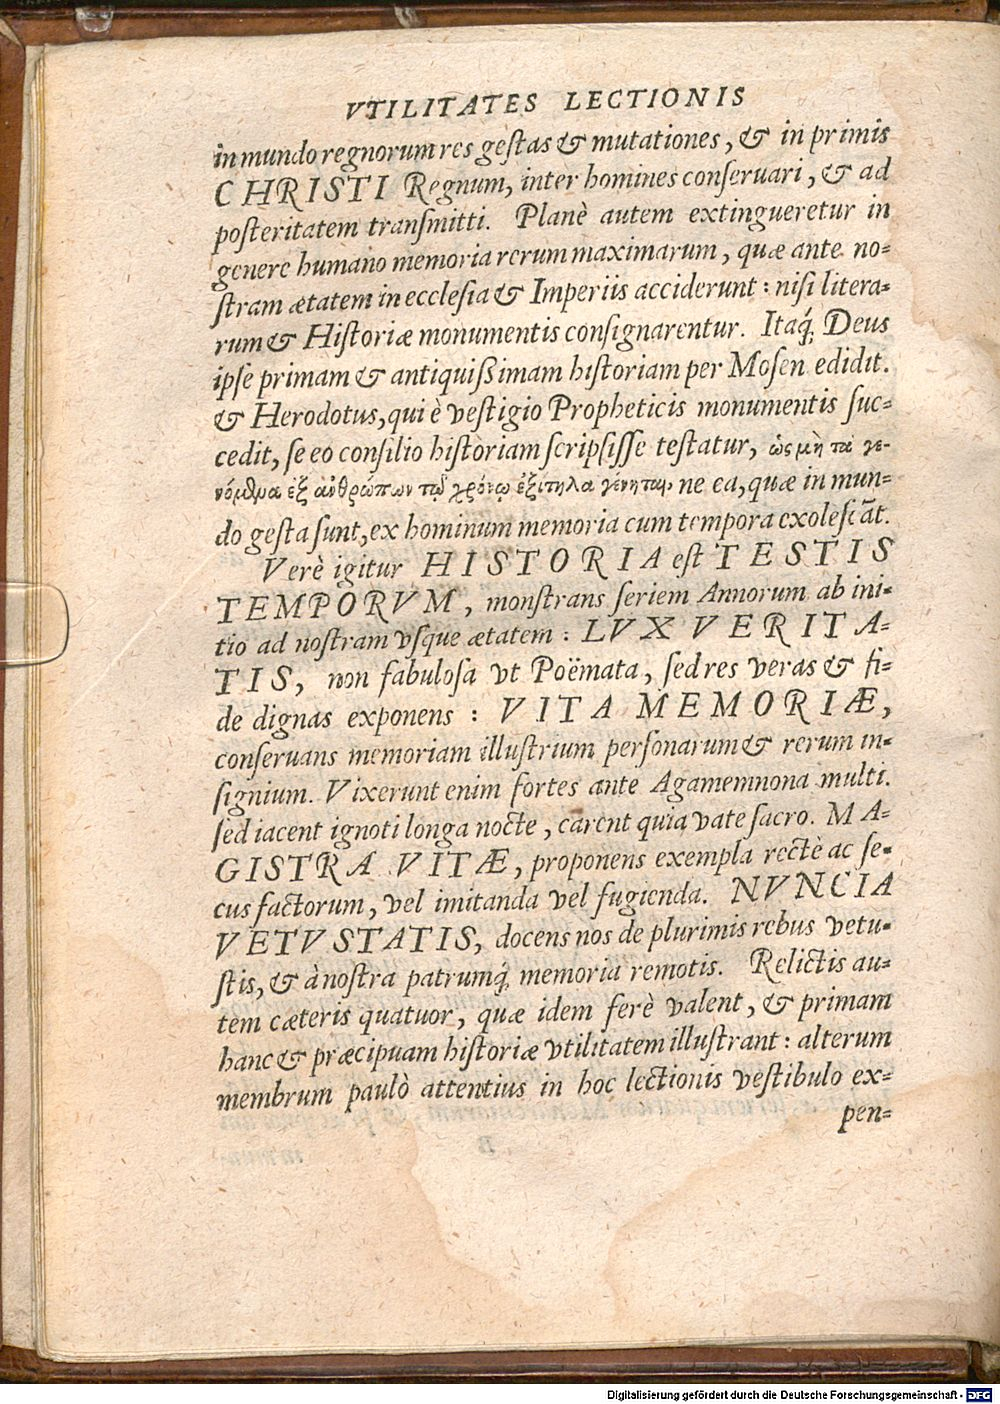 VTILITATES LECTIONIS
in mundo regnorum res gestas & mutationes, & in primis
CHRISTI Regnum, inter homines conſeruari, & ad
poſteritatem tranſmitti. Planè autem extingueretur in
genere humano memoria rerum maximarum, quæ ante no=
ſtram ætatem in eccleſia & Imperiis acciderunt: niſi litera=
rum & Hiſtoriæ monumentis conſignarentur. Itaq́; Deus
ipſe primam & antiquiſsimam hiſtoriam per Moſen edidit.
& Herodotus, qui è veſtigio Propheticis monumentis ſuc=
cedit, ſe eo conſilio hiſtoriam ſcripſiſſe teſtatur, ὡς μὴ τὰ γε-
νόμενα ἐξ ἀνθρώπων τῷ χρόνῳ ἐξίτηλα γένηται, ne ea, quæ in mun=
do geſta ſunt, ex hominum memoria cum tempora exoleſcāt.
Verè igitur HISTORIA eſt TESTIS
TEMPORVM, monſtrans ſeriem Annorum ab ini=
tio ad noſtram vſque ætatem: LVX VERITA=
TIS, non fabuloſa vt Poëmata, ſed res veras & fi=
de dignas exponens: VITA MEMORIÆ,
conſeruans memoriam illuſtrium perſonarum & rerum in=
ſignium. Vixerunt enim fortes ante Agamemnona multi.
ſed iacent ignoti longa nocte, carent quia vate ſacro. MA=
GISTRA VITÆ, proponens exempla rectè ac ſe=
cus factorum, vel imitanda vel fugienda. NVNCIA
VETVSTATIS, docens nos de plurimis rebus vetu=
ſtis, & à noſtra patrumq́; memoria remotis. Relictis au=
tem cæteris quatuor, quæ idem ferè valent, & primam
hanc & præcipuam hiſtoriæ vtilitatem illuſtrant: alterum
membrum paulò attentius in hoc lectionis veſtibulo ex=
pen=
Digitalisierung gefördert durch die Deutsche Forschungsgemeinschaft - DFG